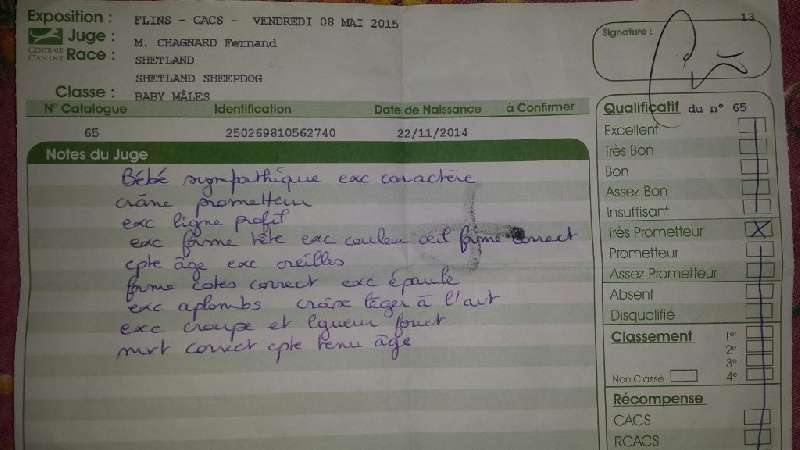 Exposition : FLINS - CACS - VENDREDI 08 MAI 2015
13
CENTRALE CANINE
Juge : M. CHAGNARD Fernand
Race : SHETLAND
SHETLAND SHEEPDOG
Classe : BABY MÂLES
Signature :
N° Catalogue Identification Date de Naissance à Confirmer
65 250269810562740 22/11/2014
Notes du Juge
Bébé sympathique exc caractère
crâne prometteur
exc ligne profil
exc forme tête exc couleur œil forme correct
cpte âge exc oreilles
forme cotes correct exc épaule
exc aplombs croise léger à l'art
exc croupe et lgueur fouet
mvt correct cpte tenu âge
Qualificatif du n° 65
Excellent
Très Bon
Bon
Assez Bon
Insuffisant
Très Prometteur X
Prometteur
Assez Prometteur
Absent
Disqualifié
Classement 1er
2e
3e
Non Classé 4e
Récompense
CACS
RCACS